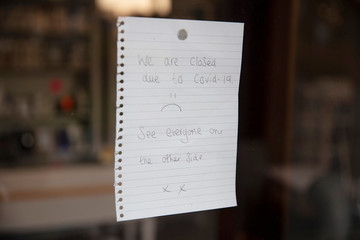 We are closed
due to Covid-19
See everyone on
the other side
x x